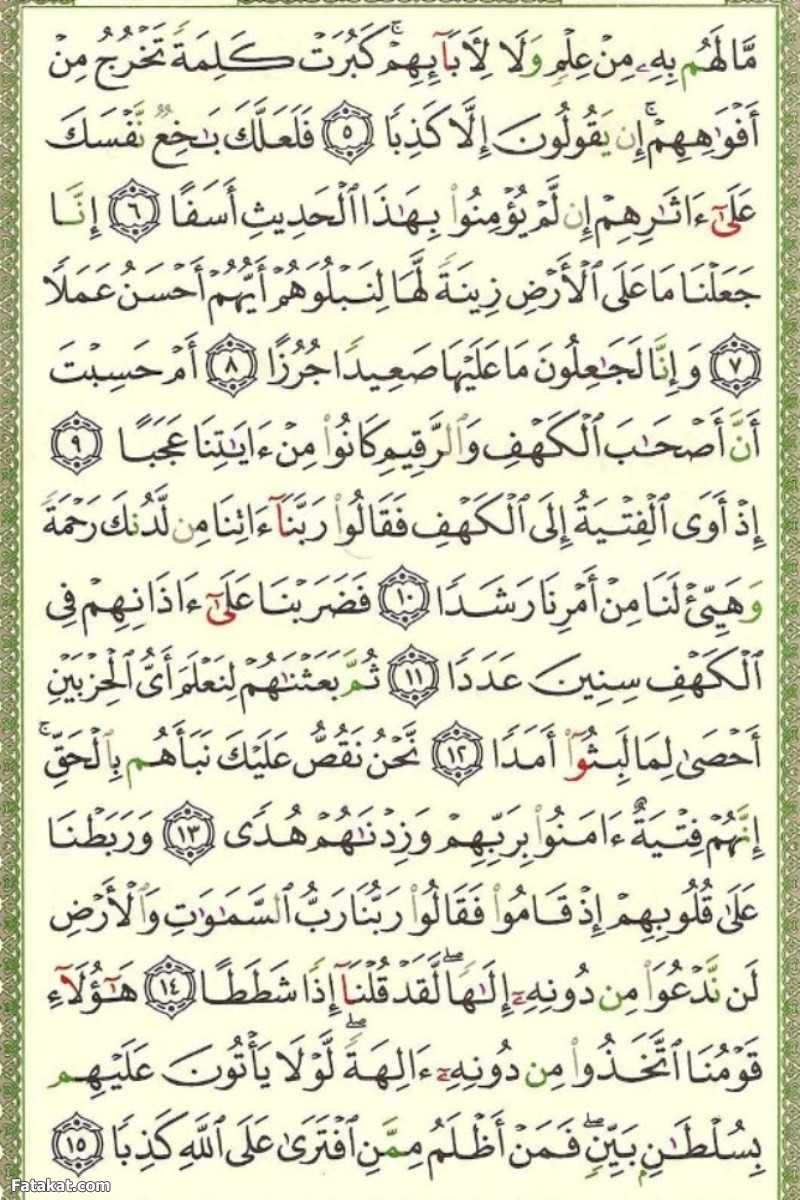 مَّا لَهُم بِهِۦ مِنْ عِلْمٍ وَلَا لِأَبَآئِهِمْ ۚ كَبُرَتْ كَلِمَةً تَخْرُجُ مِنْ
أَفْوَٰهِهِمْ ۚ إِن يَقُولُونَ إِلَّا كَذِبًا ٥ فَلَعَلَّكَ بَٰخِعٌ نَّفْسَكَ
عَلَىٰٓ ءَاثَٰرِهِمْ إِن لَّمْ يُؤْمِنُوا۟ بِهَٰذَا ٱلْحَدِيثِ أَسَفًا ٦ إِنَّا
جَعَلْنَا مَا عَلَى ٱلْأَرْضِ زِينَةً لَّهَا لِنَبْلُوَهُمْ أَيُّهُمْ أَحْسَنُ عَمَلًا
٧ وَإِنَّا لَجَٰعِلُونَ مَا عَلَيْهَا صَعِيدًا جُرُزًا ٨ أَمْ حَسِبْتَ
أَنَّ أَصْحَٰبَ ٱلْكَهْفِ وَٱلرَّقِيمِ كَانُوا۟ مِنْ ءَايَٰتِنَا عَجَبًا ٩
إِذْ أَوَى ٱلْفِتْيَةُ إِلَى ٱلْكَهْفِ فَقَالُوا۟ رَبَّنَآ ءَاتِنَا مِن لَّدُنكَ رَحْمَةً
وَهَيِّئْ لَنَا مِنْ أَمْرِنَا رَشَدًا ١٠ فَضَرَبْنَا عَلَىٰٓ ءَاذَانِهِمْ فِى
ٱلْكَهْفِ سِنِينَ عَدَدًا ١١ ثُمَّ بَعَثْنَٰهُمْ لِنَعْلَمَ أَىُّ ٱلْحِزْبَيْنِ
أَحْصَىٰ لِمَا لَبِثُوٓا۟ أَمَدًا ١٢ نَّحْنُ نَقُصُّ عَلَيْكَ نَبَأَهُم بِٱلْحَقِّ ۚ
إِنَّهُمْ فِتْيَةٌ ءَامَنُوا۟ بِرَبِّهِمْ وَزِدْنَٰهُمْ هُدًى ١٣ وَرَبَطْنَا
عَلَىٰ قُلُوبِهِمْ إِذْ قَامُوا۟ فَقَالُوا۟ رَبُّنَا رَبُّ ٱلسَّمَٰوَٰتِ وَٱلْأَرْضِ
لَن نَّدْعُوَا۟ مِن دُونِهِۦٓ إِلَٰهًا ۖ لَّقَدْ قُلْنَآ إِذًا شَطَطًا ١٤ هَٰٓؤُلَآءِ
قَوْمُنَا ٱتَّخَذُوا۟ مِن دُونِهِۦٓ ءَالِهَةً ۖ لَّوْلَا يَأْتُونَ عَلَيْهِم
بِسُلْطَٰنٍۭ بَيِّنٍ ۖ فَمَنْ أَظْلَمُ مِمَّنِ ٱفْتَرَىٰ عَلَى ٱللَّهِ كَذِبًا ١٥
Fatakat.com